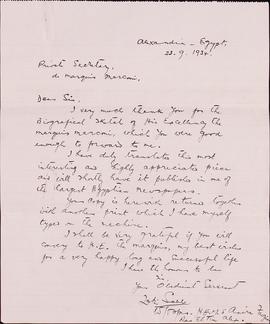 Alexandria - Egypt,
23.9.1934.
Private Secretary,
de Marquis Marconi,
Dear Sir,
I very much thank you for the
Biografical Sketch of His Excellency the
Marquis Marconi, which you were good
enough to forward to me.
I have duly translated this most
interesting and highly appreciated piece
and will shortly have it published in one of
the largest Egyptian newspapers.
Your copy is herewith returned together
with another print which I have myself
typed on the machine.
I shall be very grateful if you will
convey to H.E. the Marquis, my best wishes
for a very happy long and successful life
I have the honour to be
Sir
Your Obedient Servant